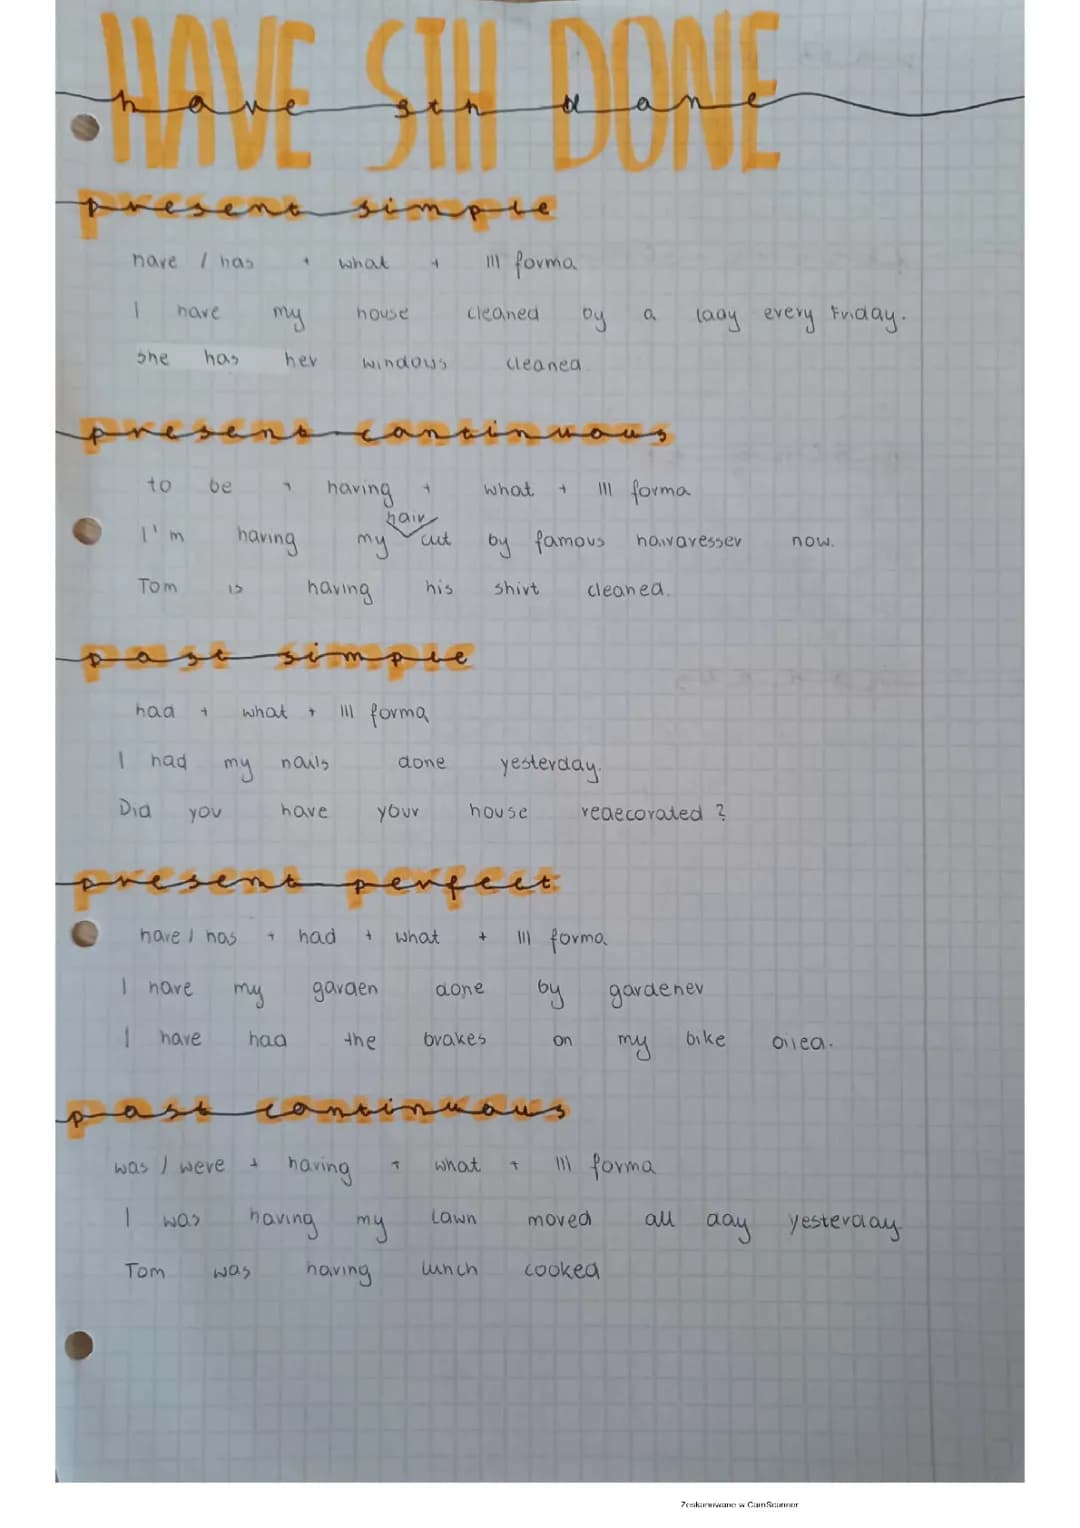 HAVE STH DONE
have sth done
present simple
have / has + what + III forma
I have my house cleaned by a lady every Friday.
She has her windows cleaned
present continuous
to be + having + what + III forma
hair
I'm having my cut by famous hairdresser now.
Tom is having his shirt cleaned.
past simple
had + what + III forma
I had my nails done yesterday.
Did you have your house redecorated ?
present perfect
have / has + had + what + III forma
I have my garden done by gardener
I have had the brakes on my bike oiled.
past continuous
was / were + having + what + III forma
I was having my lawn moved all day yesterday.
Tom was having lunch cooked
Zeskanowane w CamScanner